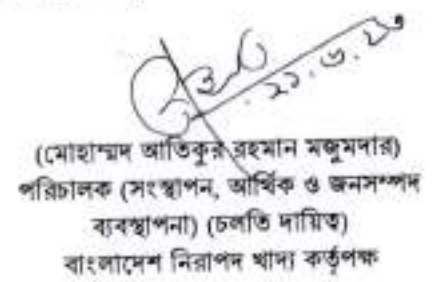 ২১.৬.২৩
(মোহাম্মদ আতিকুর রহমান মজুমদার)
পরিচালক (সংস্থাপন, আর্থিক ও জনসম্পদ
ব্যবস্থাপনা) (চলতি দায়িত্ব)
বাংলাদেশ নিরাপদ খাদ্য কর্তৃপক্ষ